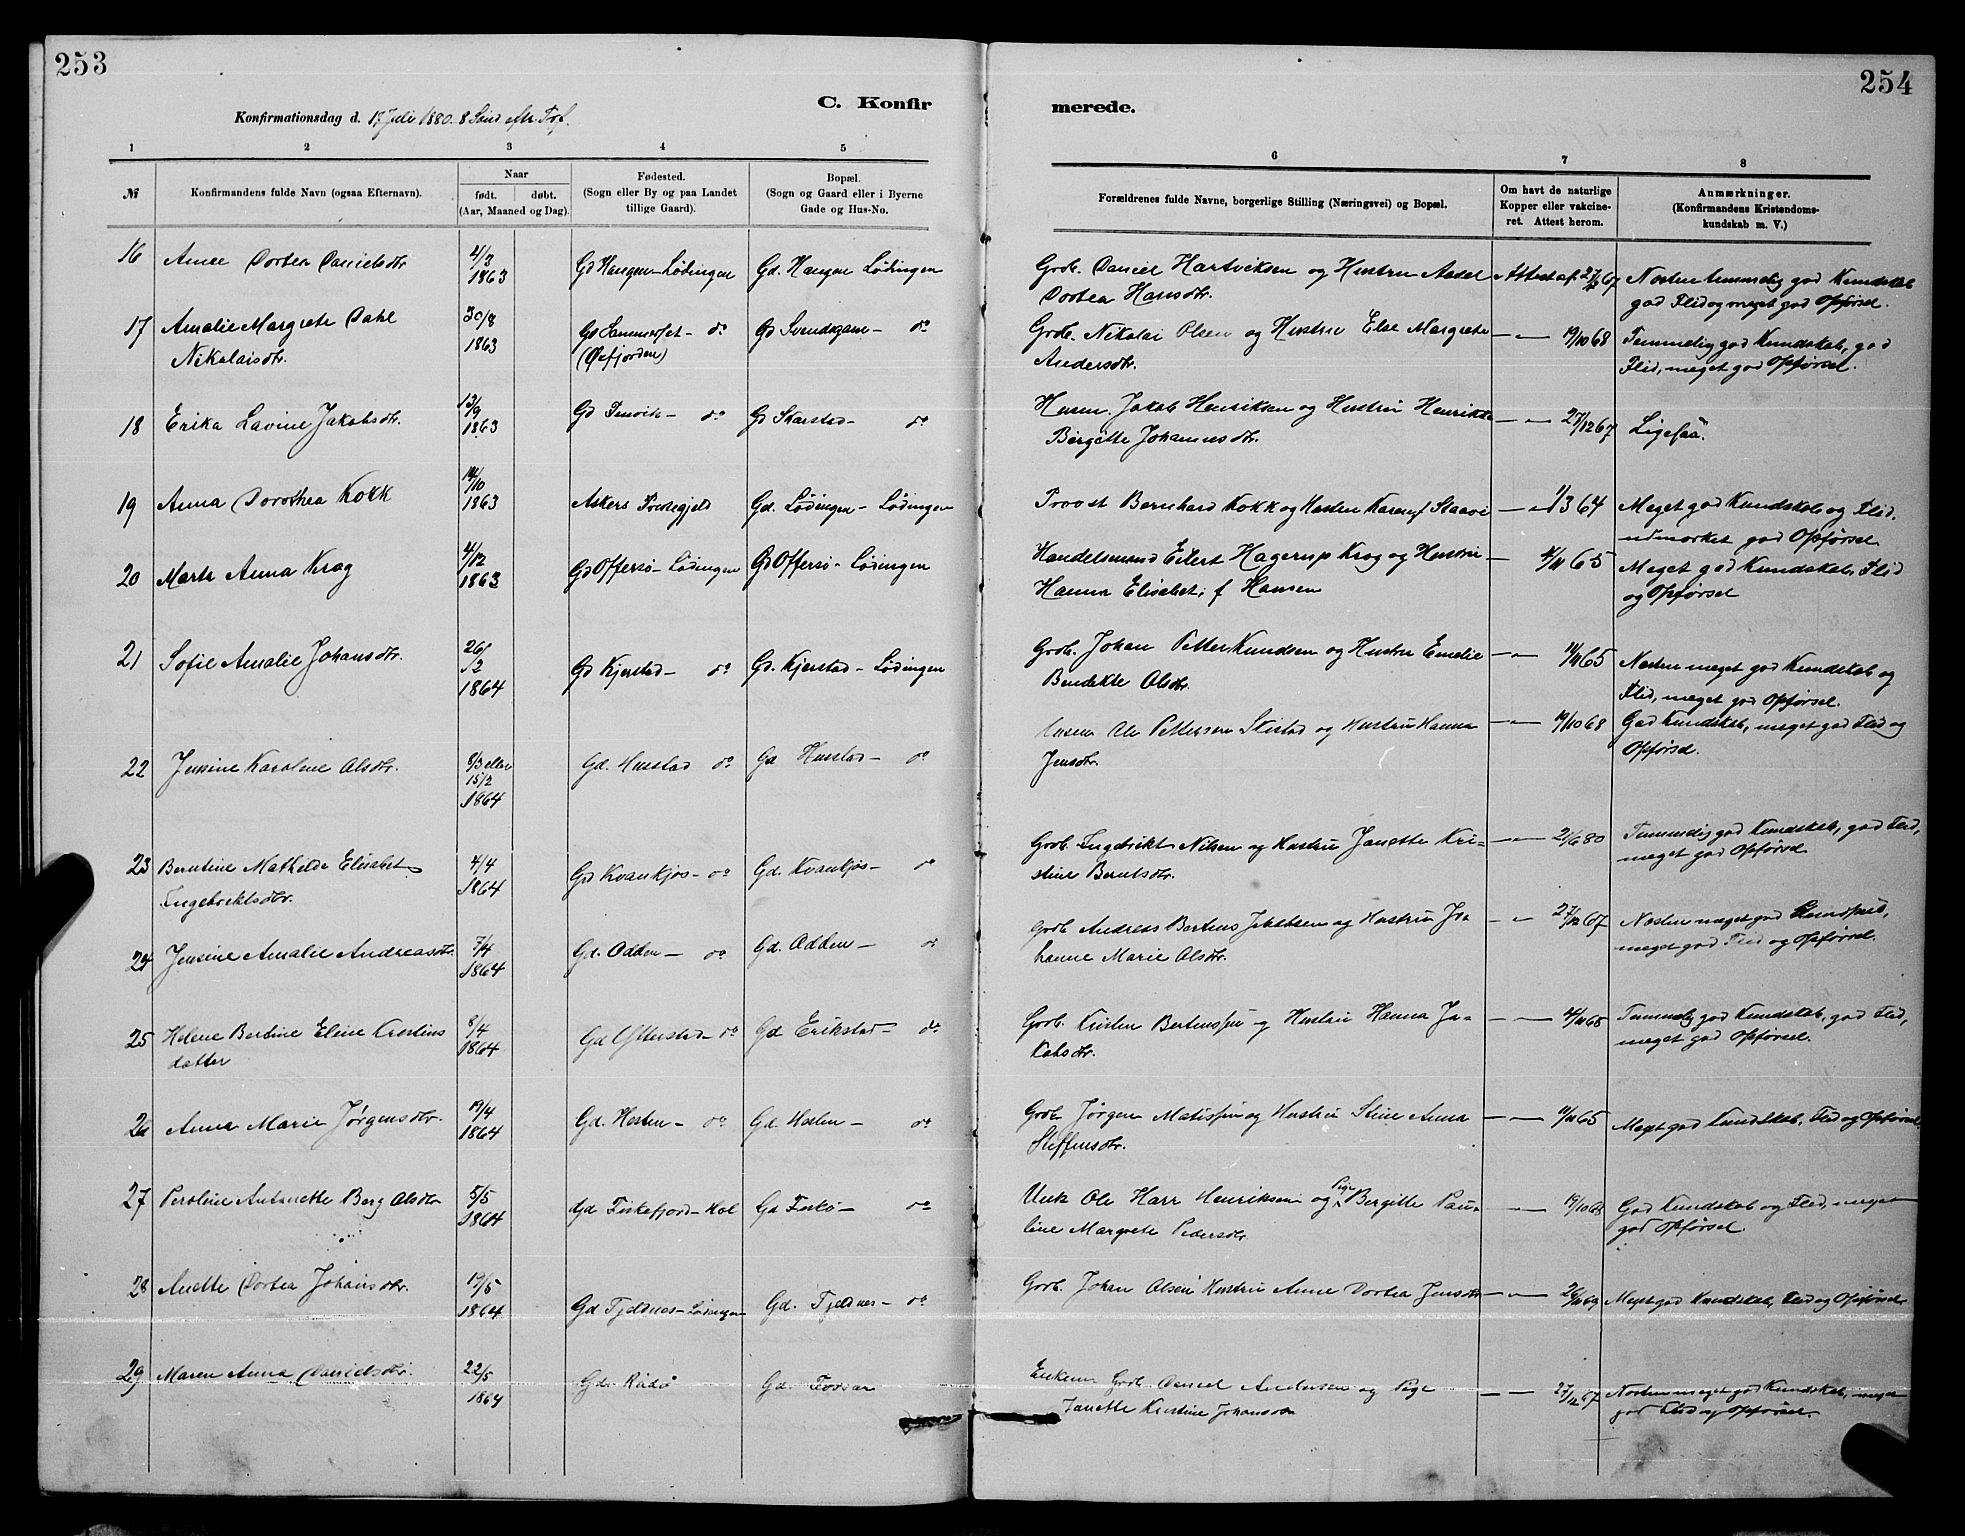 253
254
C. Konfirmerede.
Konfirmationsdag d. 17 Juli 1880. 8 Sønd. eftr. Tref.
1 2 3 4 5 6 7 8
№
Konfirmandens fulde Navn (ogsaa Efternavn).
Naar
født. døbt.
(Aar, Maaned og Dag).
Fødested.
(Sogn eller By og paa Landet
tillige Gaard).
Bopæl.
(Sogn og Gaard eller i Byerne
Gade og Hus-No.
Forældrenes fulde Navne, borgerlige Stilling (Næringsvei) og Bopæl.
Om havt de naturlige
Kopper eller vakcine-
ret. Attest herom.
Anmærkninger.
(Konfirmandens Kristendoms-
kundskab m. V.)
16 Anne Dortea Danielsdtr 4/3 1863 Gd Haugen - Lødingen Gd. Haugen Lødingen Grdb. Daniel Hartviksen og Hustru
Dortea Hansdtr. Attest af Næsten temmelig god Kundskab
god Flid og meget god Opførsel.
17 Amalie Margrete Dahl
Nikolaisdtr. 30/8 1863 (Øxfjorden) do Gd do Grdb. Nikolai Olsen og Hustru Else Margrete
Andersdtr. — " — 19/10 68 Temmelig god Kundskab, god
Flid, meget god Opførsel.
18 Erika Lavine Jakobsdtr. 13/9 1863 Gd do Gd Skarstad - do Husm. Jakob Henriksen og Hustru Henrikke
Birgitte Johannesdtr. — " — 27/12 67 Ligesaa.
19 Anna Dorothea Kokk 14/10 1863 Askers Præstegjeld Gd. Lødingen - Lødingen Provst Bernhard Kokk og Hustru Karen f. — " — 1/3 64 Meget god Kundskab og Flid,
udmærket god Opførsel
20 Marta Anna Krog 4/12 1863 Gd Offersø - Lødingen Gd Offersø - Lødingen Handelsmand Eilert Hagerup Krog og Hustru
Hanna Elisabet, f Hansen — " — 4/11 65 Meget god Kundskab, Flid
og Opførsel
21 Sofie Amalie Johansdtr. 26/2 1864 Gd Kjerstad - do Gd. Kjerstad - Lødingen Grdb. Johan Petter Knudsen og Hustru Emelie
Bendikte Olsdtr. — " — 11/11 65 Næsten meget god Kundskab og
Flid, meget god Opførsel.
22 Jensine Karoline Olsdtr. 9/3 eller
15/2
1864 Gd. Husstad do Gd Husstad - do Husm Ole Pettersen Skistad og Hustru Hanna
Jensdtr. — " — 19/10 68 God Kundskab, meget god Flid og
Opførsel.
23 Berntine Mathilde Elisabet
Ingebriktsdtr. 4/4 1864 Gd Kvankjøs - do Gd. Kvankjøs - do Grdb. Ingebrikt Nilsen og Hustru Janette Kri-
stine Berntsdtr. — " — 21/6 80 Temmelig god Kundskab, god Flid,
meget god Opførsel
24 Jensine Amalie Andreasdtr. 7/4 1864 Gd. Odden - do Gd. Odden - do Grdb. Andreas Bertens Jakobsen og Hustru Jo-
hanne Marie Olsdtr. — " — 27/12 67 Næsten meget god Kundskab,
meget god Flid og Opførsel.
25 Helene Berbine Eline Krestens
datter 8/4 1864 Gd Ytterstad - do Gd Erikstad - do Grdb. Kristen Bertenssen og Hustru Hanna Ja-
kobsdtr. — " — 4/11 68 Temmelig god Kundskab, god Flid,
meget god Opførsel.
26 Anna Marie Jørgensdtr. 19/4 1864 Gd. Hesten - do Gd. Hesten - do Grdb. Jørgen Matissen og Hustru Stine Anna
Steffensdtr. — " — 11/11 65 Meget god Kundskab, Flid og Opførsel.
27 Peroline Antonette Berg Olsdtr 5/5 1864 Gd Fiskefjord - Hol Gd Fiskø - do Unk Ole Harr Henriksen og Pige Bergitte Pau-
line Margrete Pedersdtr — " — 19/10 68 God Kundskab og Flid, meget
god Opførsel.
28 Anette Dortea Johansdtr. 19/5 1864 Gd Tjeldnes - Lødingen Gd. Tjeldnes - do Grdb. Johan Olsen Hustru Anne Dortea Jensdtr — " — 26/11 69 Meget god Kundskab, Flid og Opførsel
29 Maren Anna Danielsdtr. 22/5 1864 Gd. Rødø Gd. Enkem Grdb. Daniel Andersen og Pige
Janette Kristine Johansdtr — — 27/12 67 Næsten meget god Kundskab, meget
god Flid og Opførsel.